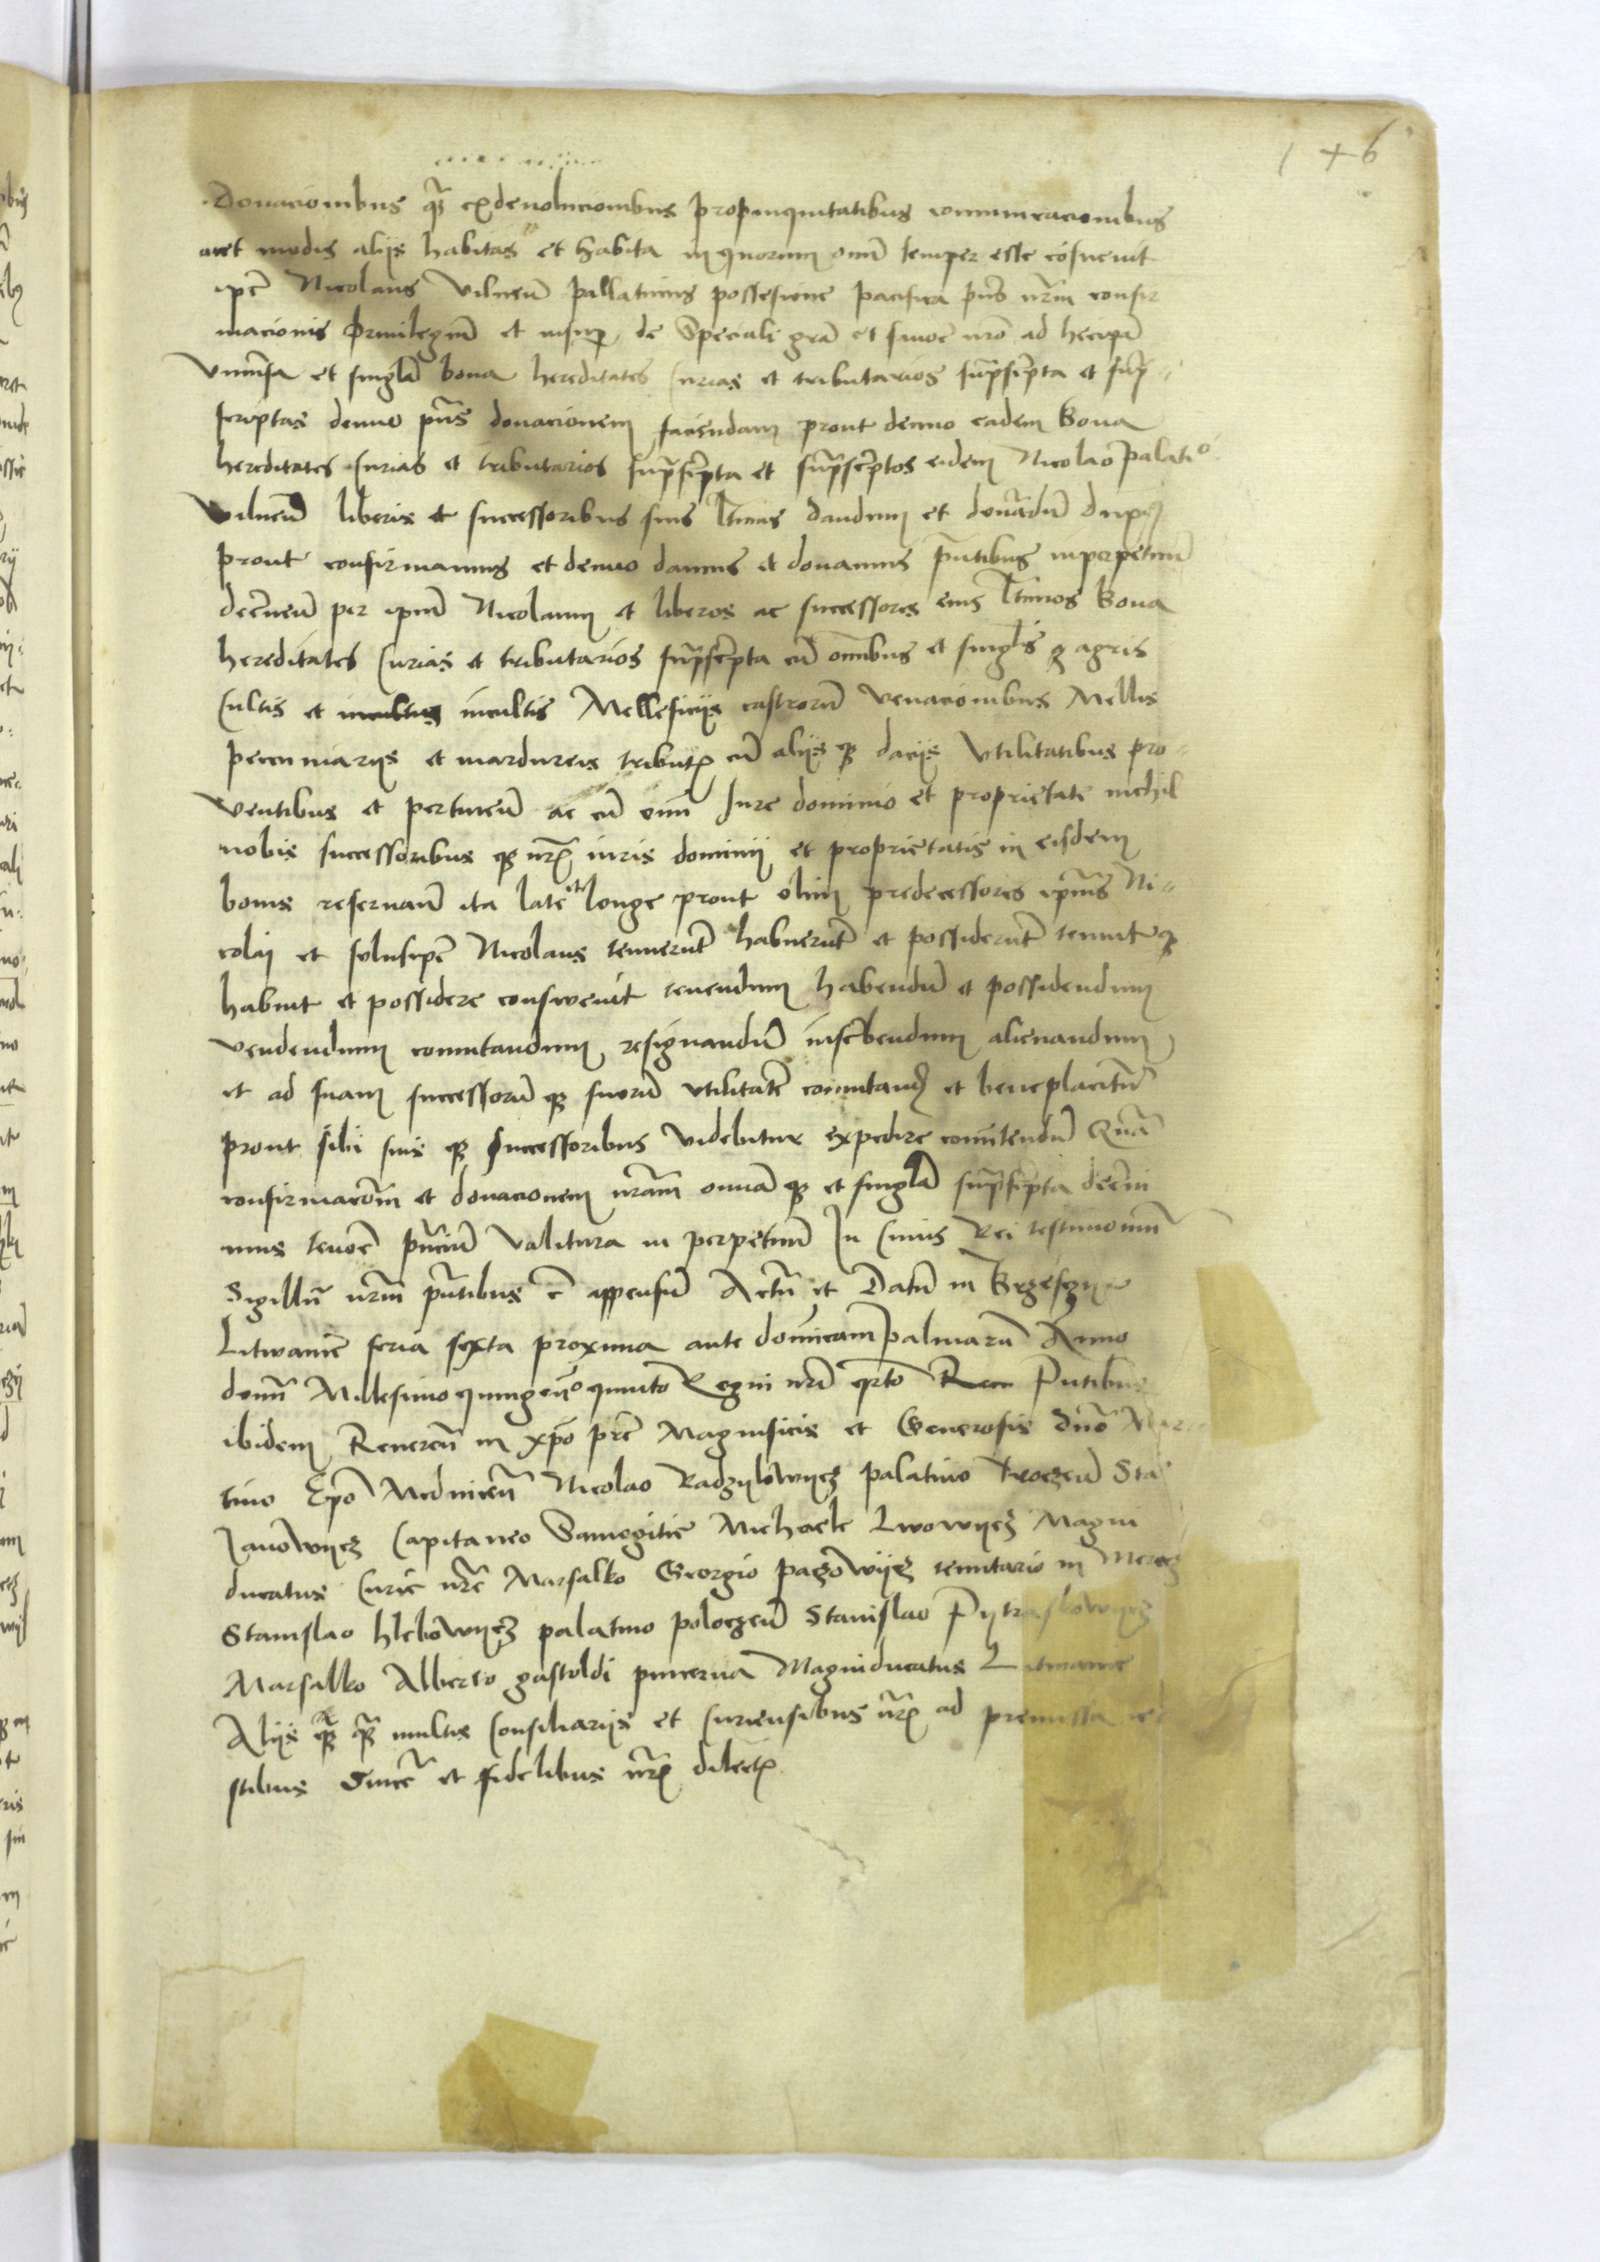 146
Donacionibus qȝ exdevolucionibus propinquitatibus comunicacionibus
aut modis aliis habitas et habita in quorum omĩ semper esse cõsuevit
ipẽ Nicolaus Vilneñ pallatinus possesione pacifica pñs nrm̃ confir
macionis privilegiũ et insup de Speciali grã et favore nro ad hec ipã
Vniũsa et singl̃a bona hereditates Curias et tributarios sup̃scr̃pta et sup̃
scriptas denuo pñs donacionem faciendam prout denuo eadem Bona
hereditates Curias et tributarios sup̃scr̃pta et sup̃scr̃ptos eidem Nicolao Palatiº
Vilneñ liberis et successoribus suis l̃timis dandum et donãdũ
prout confirmamus et denuo damus et donamus p̃ntibus inperpetuũ
decr̃neñ per ipm̃ Nicolaum et liberos ac successores eius l̃timos Bona
hereditates Curias et tributarios sup̃scr̃pta cũ omĩbus et singl̃is agris
Cultis et incultis incultis Mellificijs castrorũ Venacionibus Mellis
pecuniarijs et mardureis tribut cũ aliis qȝ dacijs Vtilitatibus pro
ventibus et pertineñ ac cũ omĩ Jure dominio et proprietate nichil
nobis successoribus qȝ nr̃ iuris dominij et proprietatis in eisdem
bonis reservañ ita late et longe prout olim predecessores ipm̃s Ni
colaj et solusipẽ Nicolaus tenuerũt habuerũt et possiderũt tenuit qȝ
habuit et possidere consuevit tenendum habendũ et possidendum
vendendum comutandum resignandũ inscr̃bendum alienandum
et ad suam successorũ qȝ suorũ vtilitatẽ comutand et beneplacitũ
prout sibi suis qȝ successoribus videbitur expedire comitendũ Quã
confirmacõm̃ et donacionem nr̃am omnã qȝ et singl̃a sup̃scr̃pta decrñi
mus tenore p̃nciũ Valitura in perpetuũ In Cuius Rei testimoniũ
Sigillũ nrm̃ p̃ntibus ẽ appensũ Actũ et Datũ in Brzesczie
Litwanie feria sexta proxima ante domĩcam palmarũ Anno
domĩ Millesimo quingeñº quinto Regni nrĩ qrto Pñtibus
ibidem Reverenñ in xpõ prẽ Magnificis et Generosis dño Mar
tino Epõ Mednicen̄ Nicolao Radzywilowijcz palatino troczeñ Sta
Janowijcz Capitaneo Samogitie Michaele Lwowijcz Magni
ducatus Curie nrẽ Marsalko Georgio paczowijcz tenutario in Merecz
Stanislao hlebowijcz palatino poloczeñ Stanislao Pijtraskowijcz
Marsalko Alberto gastoldi pincerna Magniducatus Litwanie
Aliis qȝ qȝ multis Consiliarijs et Curiensibus nr̃ ad premissa te
stibus Sincẽ et fidelibus nr̃ dilect